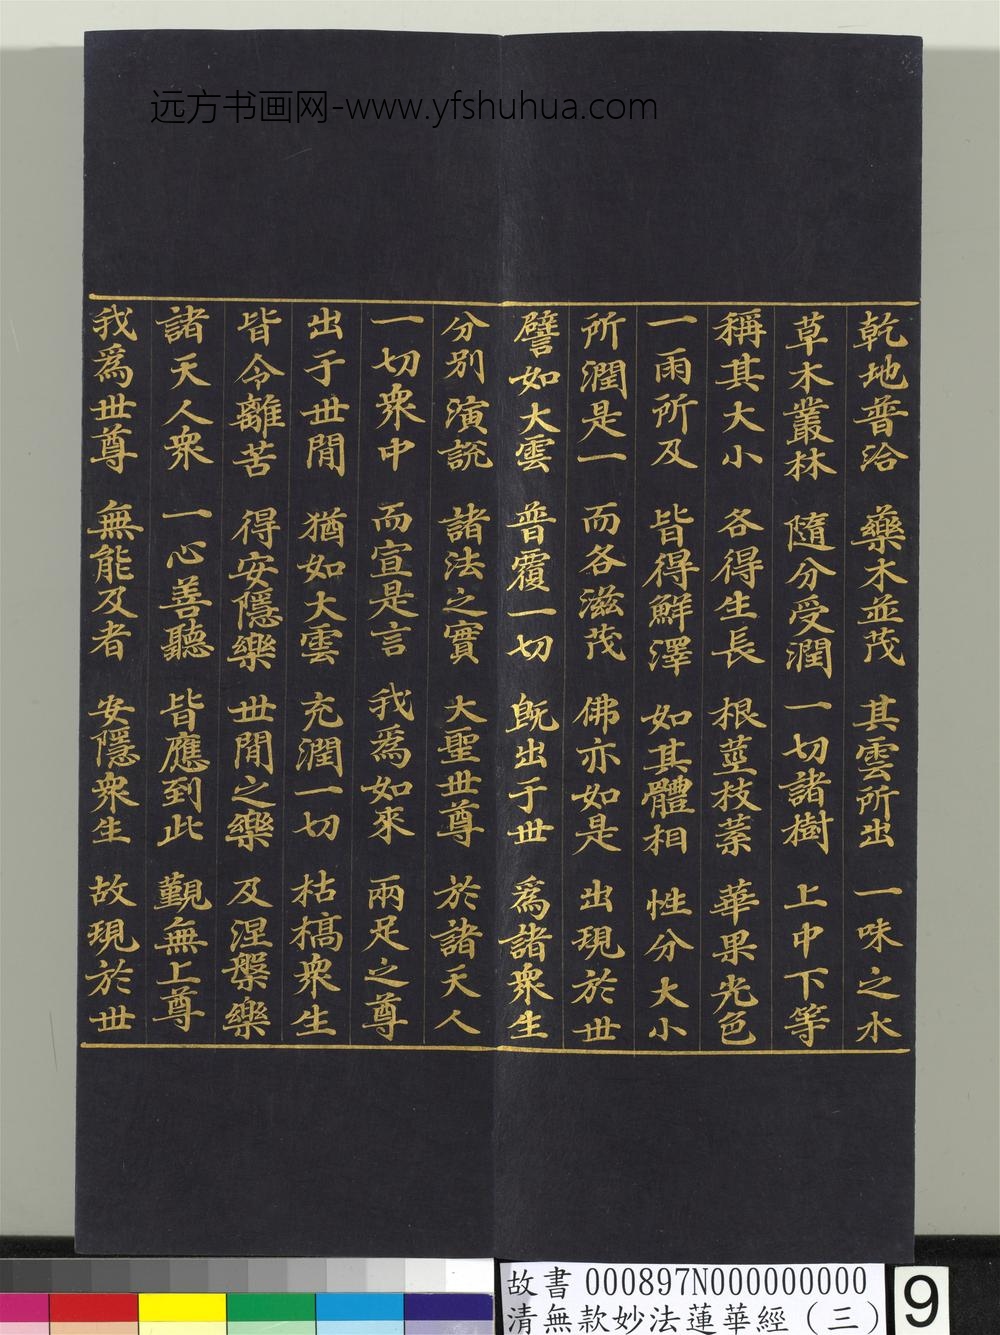 远方书画网-www.yfshuhua.com
乾地普洽 藥木並茂 其雲所出 一味之水
草木叢林 隨分受潤 一切諸樹 上中下等
稱其大小 各得生長 根莖枝葉 華果光色
一雨所及 皆得鮮澤 如其體相 性分大小
所潤是一 而各滋茂 佛亦如是 出現於世
譬如大雲 普覆一切 既出于世 為諸衆生
分別演說 諸法之實 大聖世尊 於諸天人
一切衆中 而宣是言 我為如來 兩足之尊
出于世間 猶如大雲 充潤一切 枯槁衆生
皆令離苦 得安隱樂 世間之樂 及涅槃樂
諸天人衆 一心善聽 皆應到此 覲無上尊
我為世尊 無能及者 安隱衆生 故現於世
故書 000897N000000000
清無款妙法蓮華經(三)
9